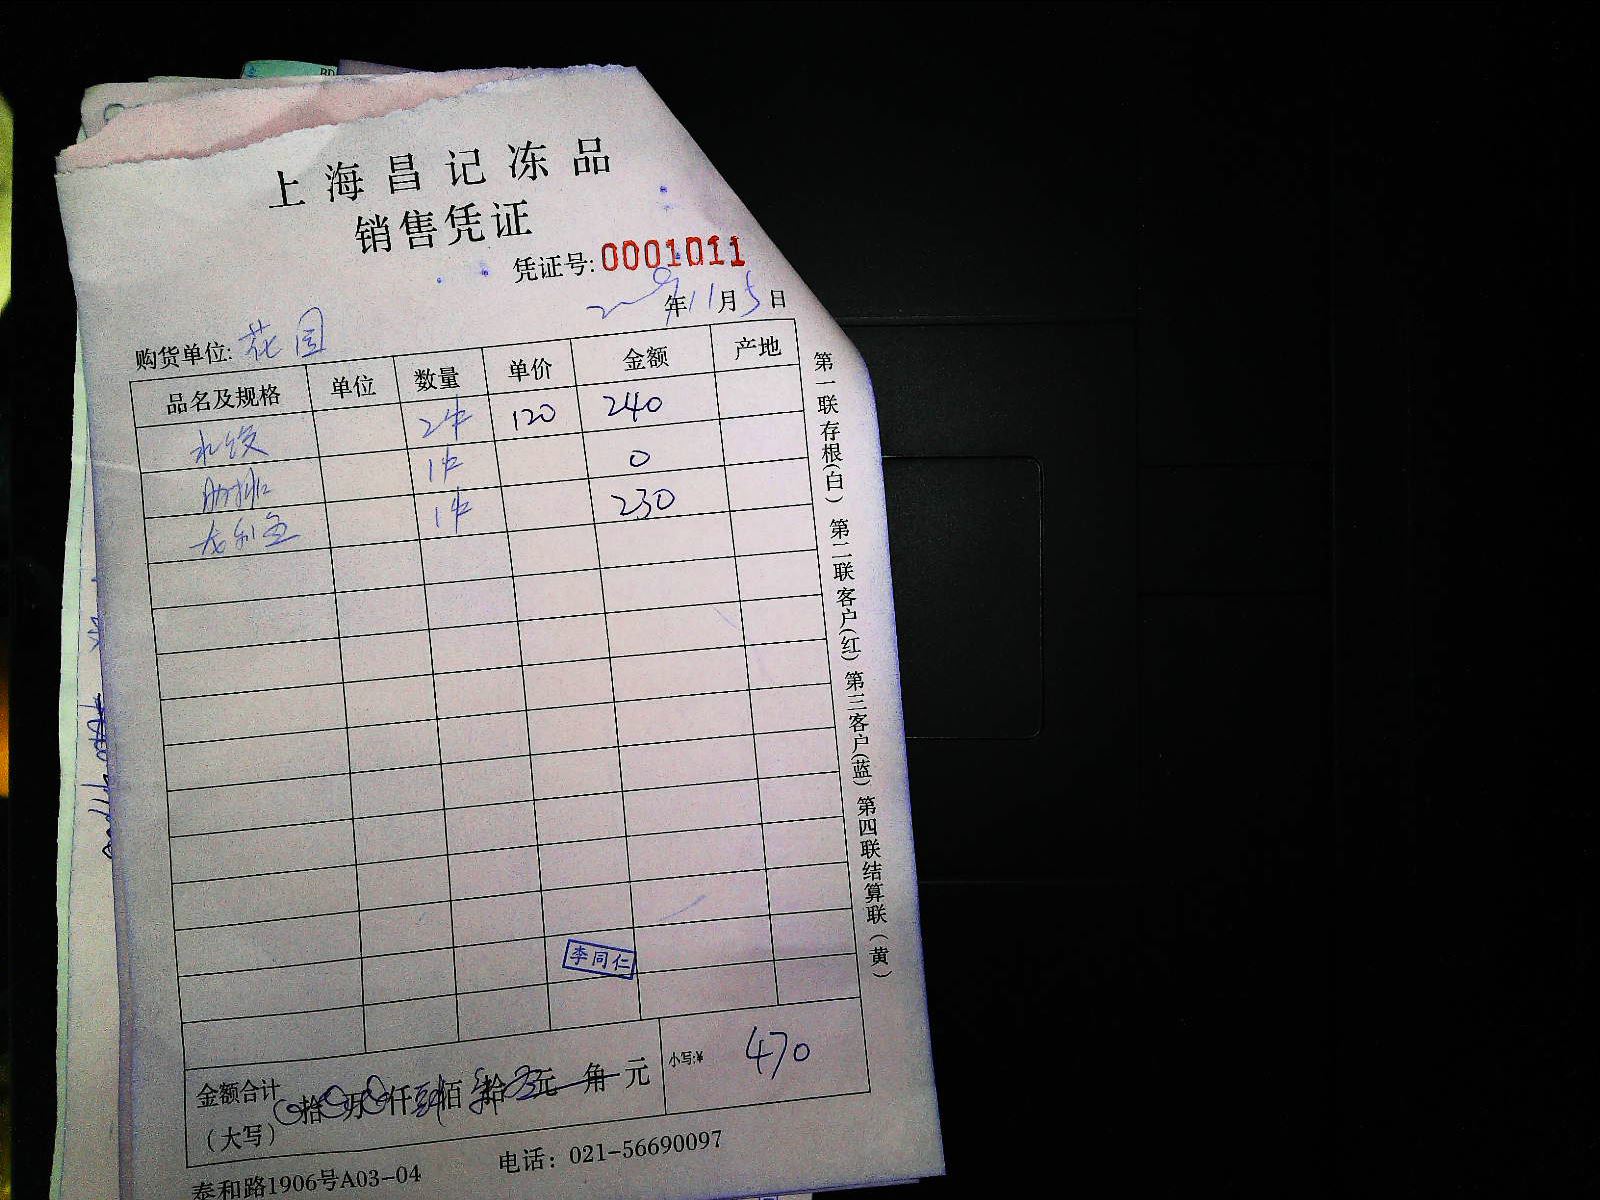 上海昌记冻品
销售凭证
凭证号:0001011
2009年11月5日
购货单位:花园
品名及规格 单位 数量 单价 金额 产地
水饺 2件 120 240
肋排 1件 0
龙利鱼 1件 230
李同仁
金额合计（大写） 拾 万 仟 佰 拾 元 角 元 小写:¥ 470
泰和路1906号A03-04 电话：021-56690097
第一联存根(白) 第二联客户(红) 第三客户(蓝) 第四联结算联(黄)